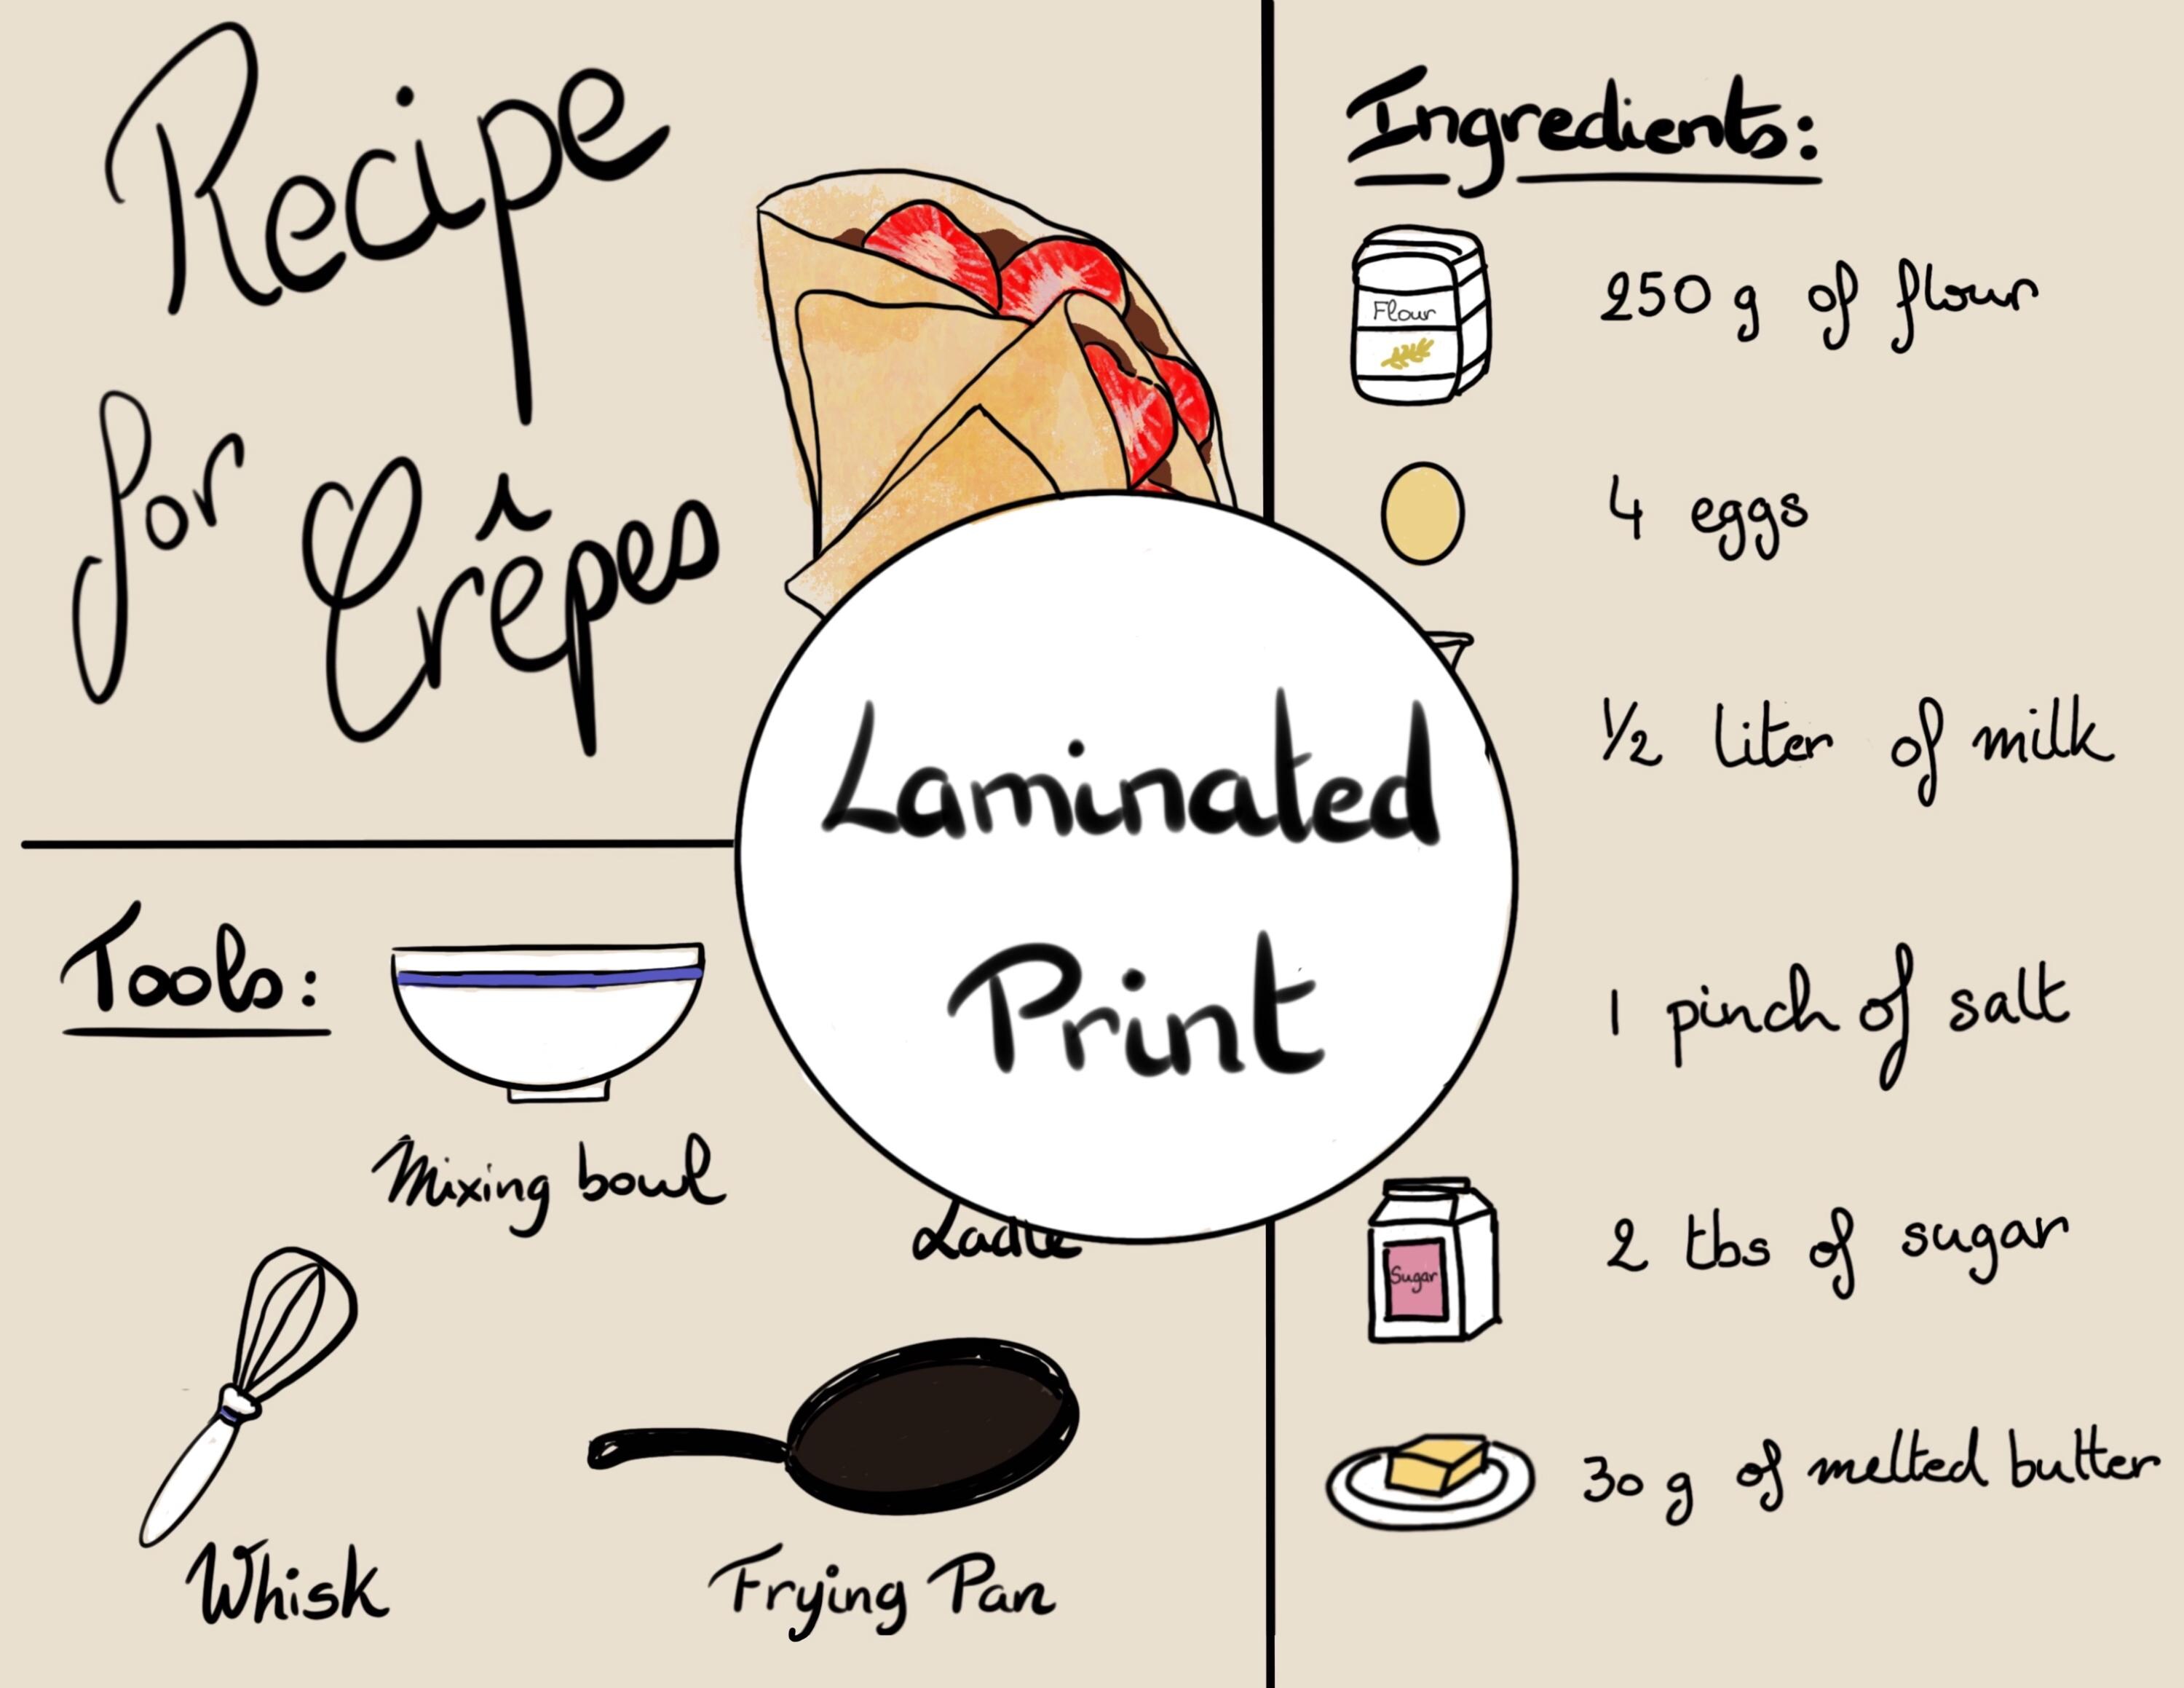 Recipe
for Crêpes
Ingredients:
Flour
250 g of flour
4 eggs
1/2 liter of milk
1 pinch of salt
Sugar
2 tbs of sugar
30 g of melted butter
Laminated
Print
Tools:
Mixing bowl
Ladle
Whisk
Frying Pan